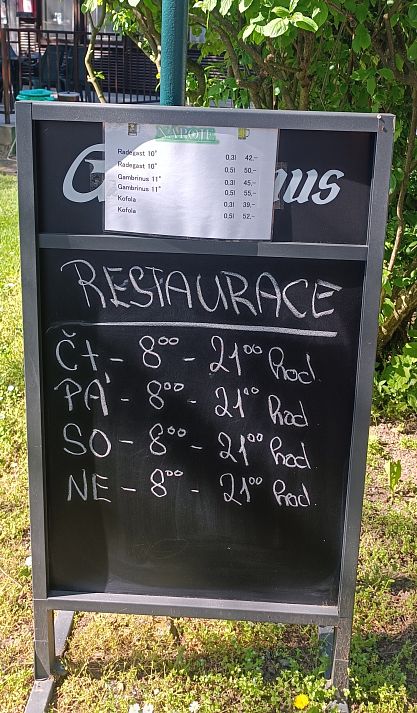 NÁPOJE
Radegast 10° 0,3l 42,-
Radegast 10° 0,5l 50,-
Gambrinus 11° 0,3l 45,-
Gambrinus 11° 0,5l 55,-
Kofola 0,3l 39,-
Kofola 0,5l 52,-
G nus
RESTAURACE
Čt - 8⁰⁰ - 21⁰⁰ hod.
PÁ - 8⁰⁰ - 21⁰⁰ hod.
SO - 8⁰⁰ - 21⁰⁰ hod.
NE - 8⁰⁰ - 21⁰⁰ hod.